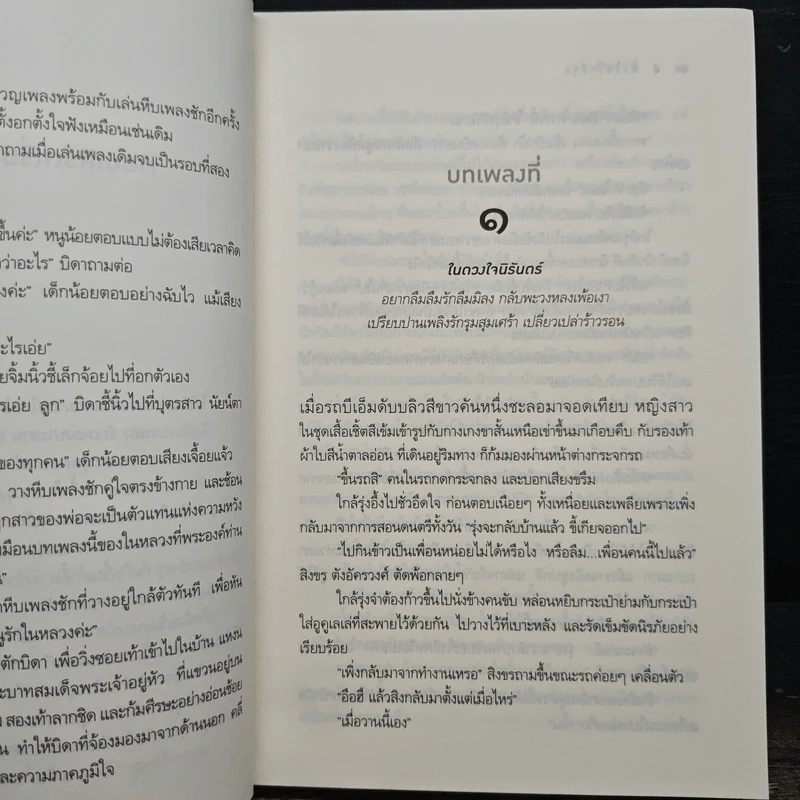 วญเพลงพร้อมกับเล่นหีบเพลงชักอีกครั้ง
ตั้งอกตั้งใจฟังเหมือนเช่นเดิม
าถามเมื่อเล่นเพลงเดิมจบเป็นรอบที่สอง
ชื้นค่ะ” หนูน้อยตอบแบบไม่ต้องเสียเวลาคิด
ว่าอะไร” บิดาถามต่อ
งค่ะ” เด็กน้อยตอบอย่างฉับไว แม้เสียง
ะไรเอ่ย”
ยจิ้มนิ้วชี้เล็กจ้อยไปที่อกตัวเอง
รเอ่ย ลูก” บิดาชี้นิ้วไปที่บุตรสาว นัยน์ตา
ของทุกคน” เด็กน้อยตอบเสียงเจื้อยแจ้ว
วางหีบเพลงชักคู่ใจตรงข้างกาย และช้อน
ูกสาวของพ่อจะเป็นตัวแทนแห่งความหวัง
มือนบทเพลงนี้ของในหลวงที่พระองค์ท่าน
น”
าหีบเพลงชักที่วางอยู่ใกล้ตัวทันที เพื่อหัน
นูรักในหลวงค่ะ”
ตักบิดา เพื่อวิ่งซอยเท้าเข้าไปในบ้าน แหงน
ะบาทสมเด็จพระเจ้าอยู่หัว ที่แขวนอยู่บน
สองเท้าลากชิด และก้มศีรษะอย่างอ่อนช้อย
น ทำให้บิดาที่จ้องมองมาจากด้านนอก คลี่
ละความภาคภูมิใจ
บทเพลงที่
๑
ในดวงใจนิรันดร์
อยากลืมลืมรักลืมมิลง กลับพะวงหลงเพ้อเงา
เปรียบปานเพลิงรักรุมสุมเศร้า เปลี่ยวเปล่าร้าวรอน
เมื่อรถบีเอ็มดับบลิวสีขาวคันหนึ่งชะลอมาจอดเทียบ หญิงสาว
ในชุดเสื้อเชิ้ตสีเข้มเข้ารูปกับกางเกงขาสั้นเหนือเข่าขึ้นมาเกือบคืบ กับรองเท้า
ผ้าใบสีน้ำตาลอ่อน ที่เดินอยู่ริมทาง ก็ก้มมองผ่านหน้าต่างกระจกรถ
“ขึ้นรถสิ” คนในรถกดกระจกลง และบอกเสียงขรึม
ใกล้รุ่งอึ้งไปชั่วอึดใจ ก่อนตอบเนือยๆ ทั้งเหนื่อยและเพลียเพราะเพิ่ง
กลับมาจากการสอนดนตรีทั้งวัน “รุ่งจะกลับบ้านแล้ว ขี้เกียจออกไป”
“ไปกินข้าวเป็นเพื่อนหน่อยไม่ได้หรือไง หรือลืม...เพื่อนคนนี้ไปแล้ว”
สิงขร ตังอัครวงศ์ ตัดพ้อกลายๆ
ใกล้รุ่งจำต้องก้าวขึ้นไปนั่งข้างคนขับ หล่อนหยิบกระเป๋าย่ามกับกระเป๋า
ใส่อูคูเลเล่ที่สะพายไว้ด้วยกัน ไปวางไว้ที่เบาะหลัง และรัดเข็มขัดนิรภัยอย่าง
เรียบร้อย
“เพิ่งกลับมาจากทำงานเหรอ” สิงขรถามขึ้นขณะรถค่อยๆ เคลื่อนตัว
“อือฮึ แล้วสิงกลับมาตั้งแต่เมื่อไหร่”
“เมื่อวานนี้เอง”